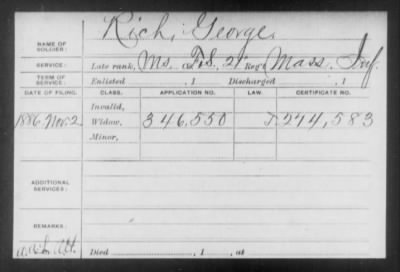 NAME OF SOLDIER: Rich, George.
SERVICE: Late rank, Ms. Co. F.S. 21" Reg't Mass. Inf.
TERM OF SERVICE: Enlisted , 1 Discharged , 1
DATE OF FILING. CLASS. APPLICATION NO. LAW. CERTIFICATE NO.
Invalid,
1886 Nov. 2 Widow, 346,550 274,583
Minor,
ADDITIONAL SERVICES:
REMARKS:
Died , 1 , at